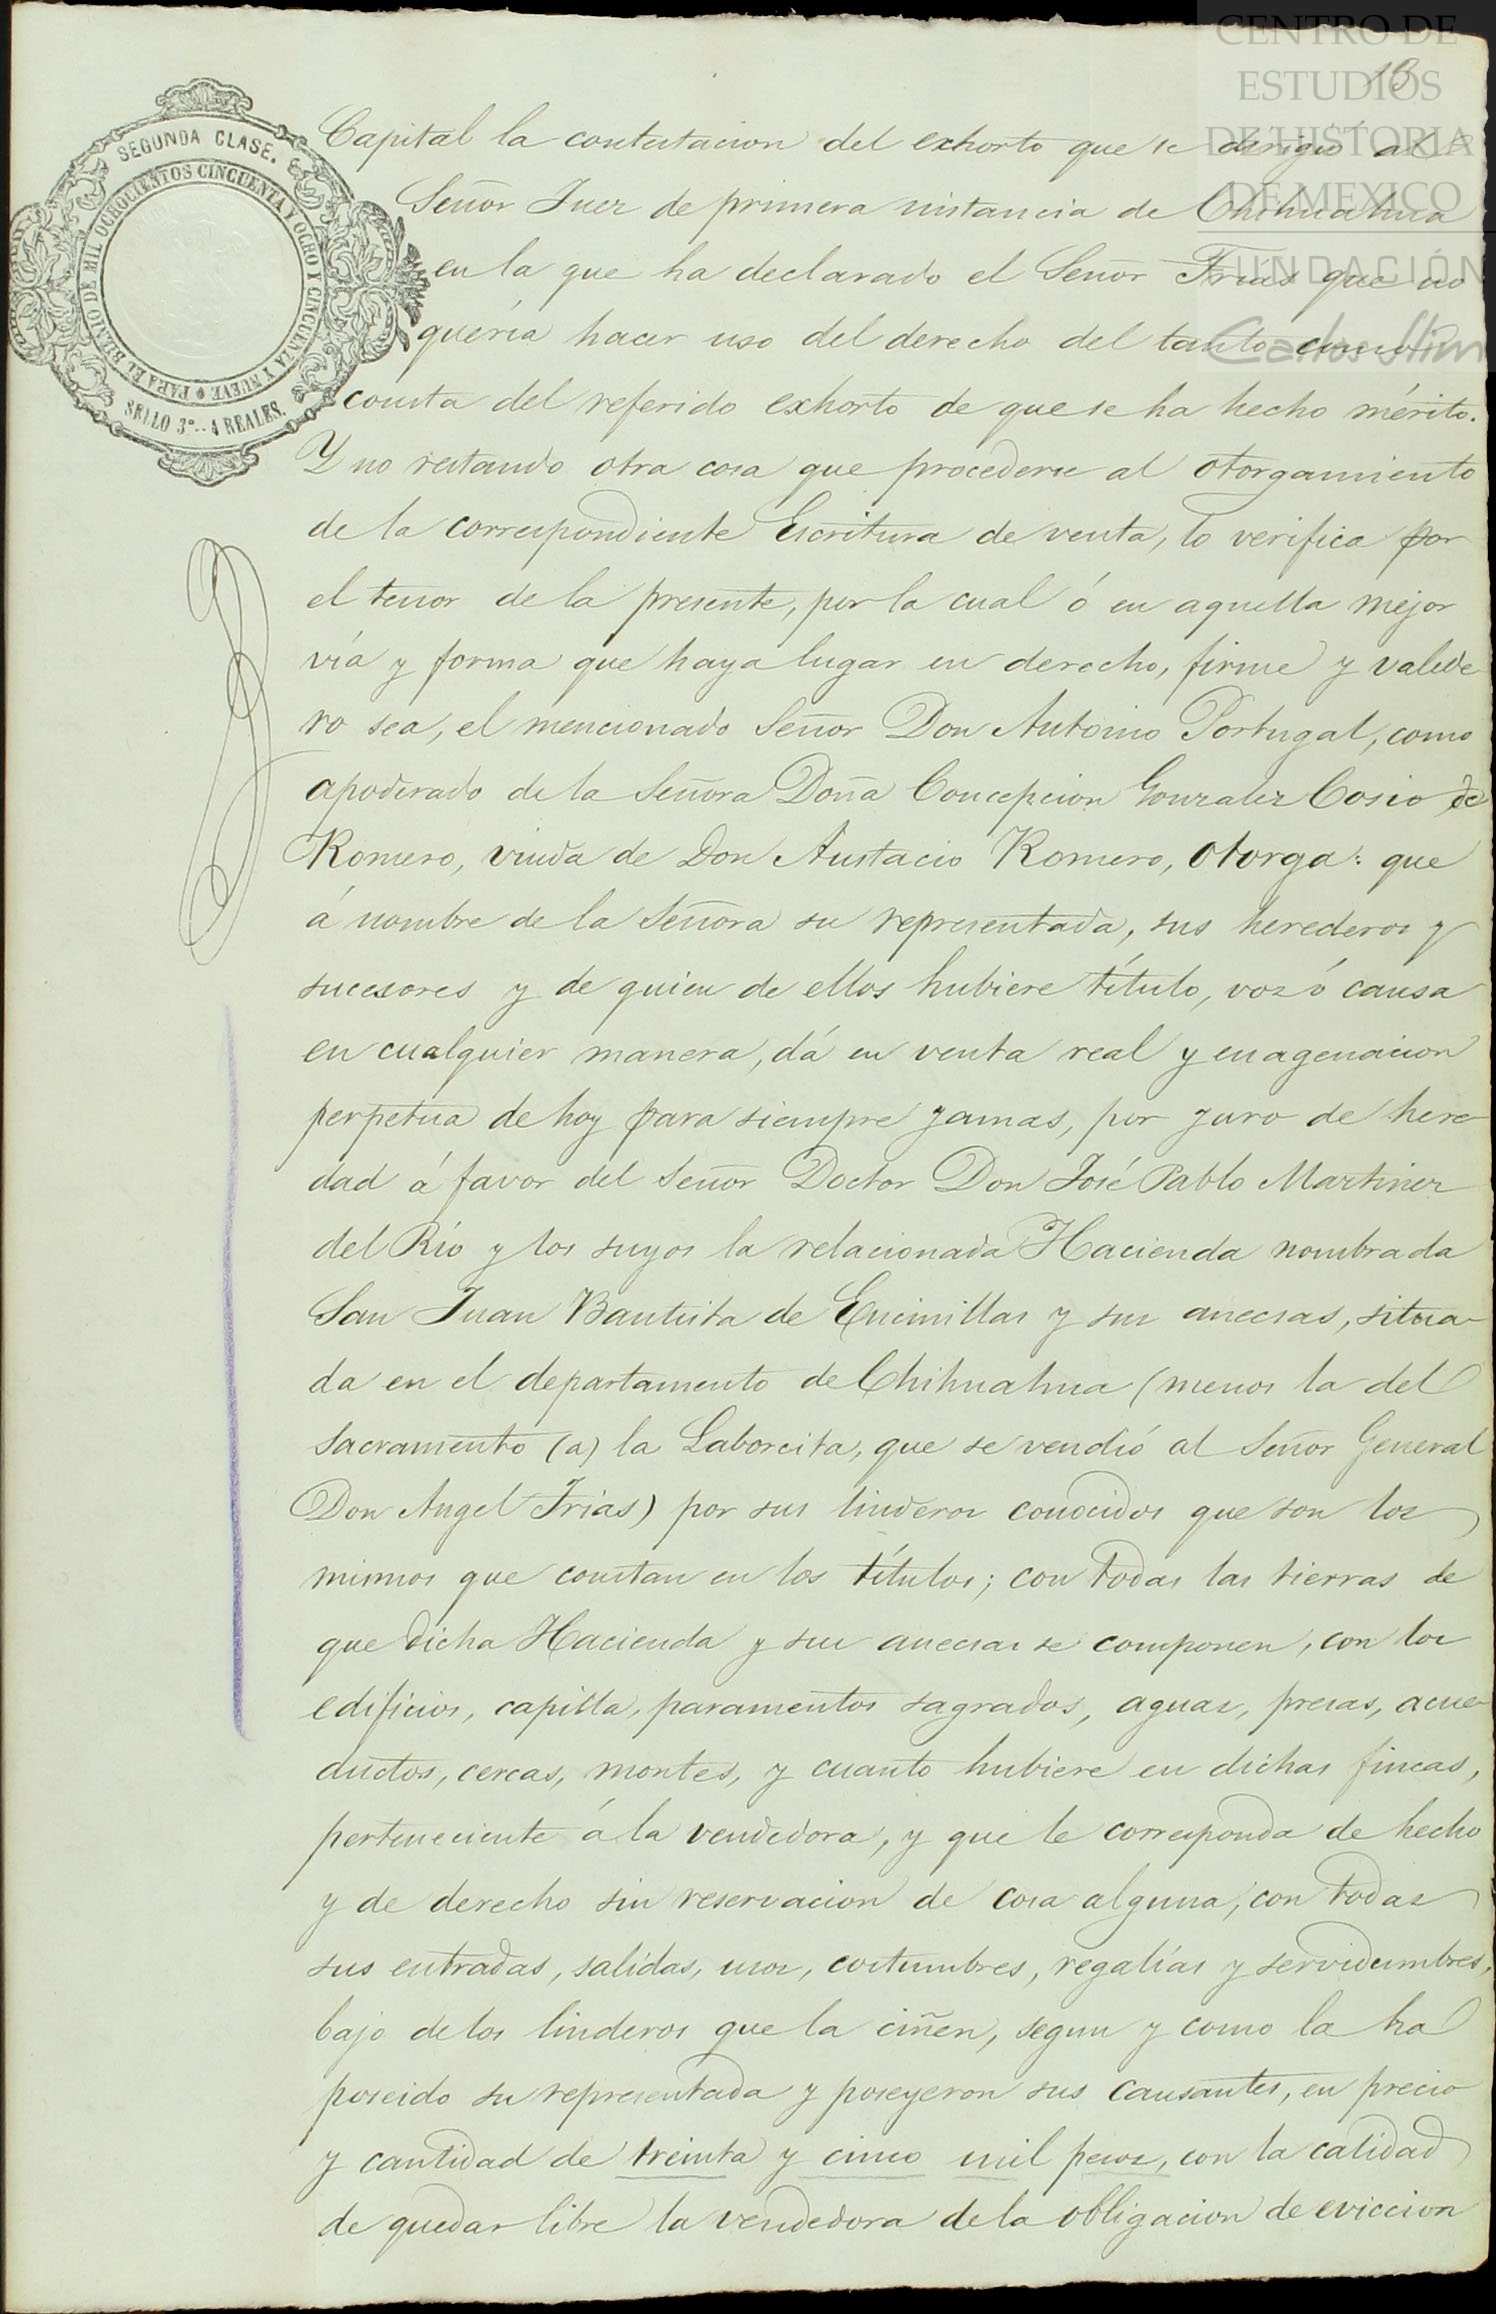 CENTRO DE
ESTUDIOS
DE HISTORIA
DE MEXICO
FUNDACIÓN
Carlos Slim
13
SEGUNDA CLASE.
PARA EL BIENIO DE MIL OCHOCIENTOS CINCUENTA Y OCHO Y CINCUENTA Y NUEVE
SELLO 3º.. 4 REALES.
Capital la contestacion del exhorto que se dirigió al
Señor Juez de primera instancia de Chihuahua
en la que ha declarado el Señor Frías que no
quería hacer uso del derecho del tanto como
consta del referido exhorto de que se ha hecho mérito.
Y no restando otra cosa que procederse al otorgamiento
de la correspondiente Escritura de venta, lo verifica por
el tenor de la presente, por la cual ó en aquella mejor
vía y forma que haya lugar en derecho, firme y valede-
ro sea, el mencionado Señor Don Antonio Portugal, como
apoderado de la Señora Doña Concepcion Gonzalez Cosio de
Romero, viuda de Don Austacio Romero, otorga: que
á nombre de la Señora su representada, sus herederos y
sucesores y de quien de ellos hubiere título, voz ó causa
en cualquier manera, dá en venta real y enagenacion
perpetua de hoy para siempre jamas, por juro de here-
dad á favor del Señor Doctor Don José Pablo Martinez
del Río y los suyos la relacionada Hacienda nombrada
San Juan Bautista de Encinillas y sus anecsas, situa-
da en el departamento de Chihuahua (menos la del
Sacramento (a) la Laborcita, que se vendió al Señor General
Don Angel Frias) por sus linderos conocidos que son los
mismos que constan en los títulos; con todas las tierras de
que dicha Hacienda y sus anecsas se componen, con los
edificios, capilla, paramentos sagrados, aguas, presas, acue-
ductos, cercas, montes, y cuanto hubiere en dichas fincas,
perteneciente á la vendedora, y que le corresponda de hecho
y de derecho sin reservacion de cosa alguna, con todas
sus entradas, salidas, usos, costumbres, regalías y servidumbres,
bajo de los linderos que la ciñen, segun y como la ha
poseido su representada y poseyeron sus causantes, en precio
y cantidad de treinta y cinco mil pesos, con la calidad
de quedar libre la vendedora de la obligacion de eviccion